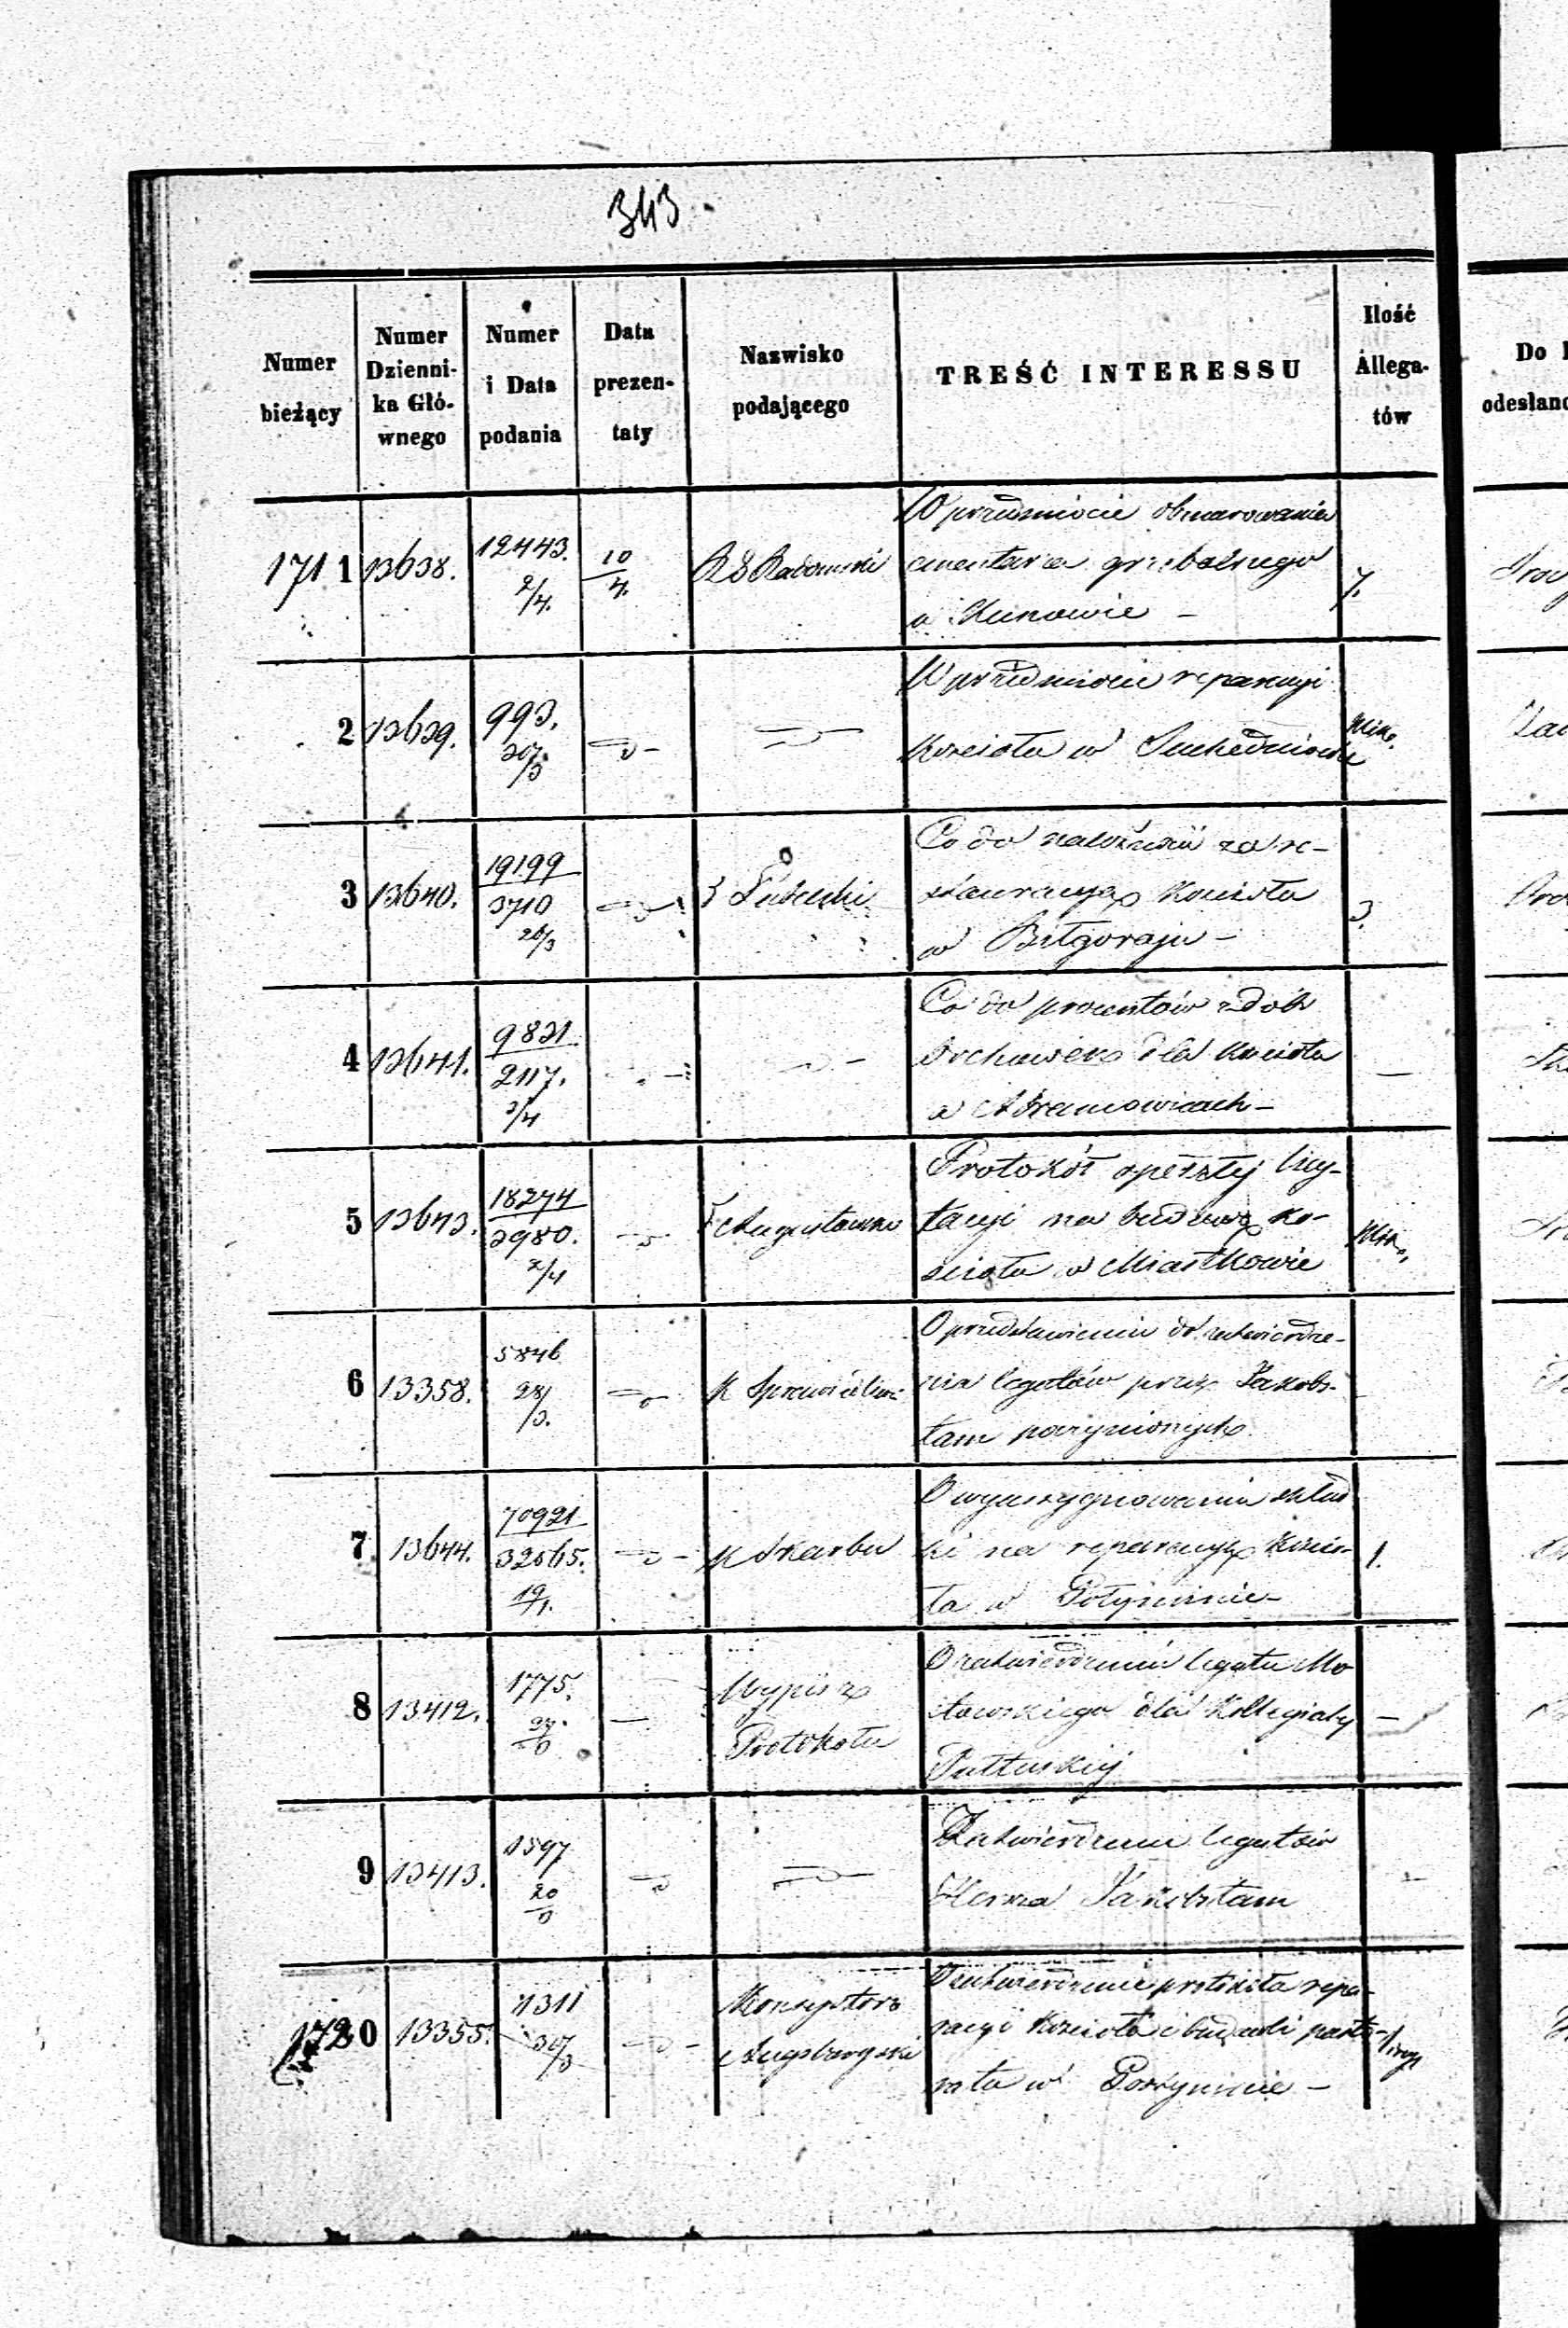 343
Numer bieżący
Numer Dzienni-ka Głó-wnego
Numer i Data podania
Data prezen-taty
Nazwisko podającego
TREŚĆ INTERESSU
Ilość Allega-tów
Do
1711 13638. 12443. 2/4. 10/4. R G Radomski
W przedmiocie obmurowania
cmentarza grzebalnego
w Kunowie –
7.
2 13639. 993.
W przedmiocie reperacyi
Kościoła w Suchedniowie
3 13640. 19199 3710 26/3
Co do należności za re-
stauracyą Kościoła
w Biłgoraju –
3.
4 13641. 9821 2117. 3/4
Co do procentów z dóbr
dla Kościoła
w Abramowicach –
5 13643. 18274 3980. 2/4 Augustowski
Protokół spełzłej licy-
tacyi na budowę ko-
ścioła w Miastkowie
6 13358. 5846 28/3. K Sprawiedliwi
O przedstawieniu do zatwierdze-
nia legatów przez Jakob-
tam poczynionych
7 13644. 70921 32565. 19/1. K Skarbu
O wyassygnowanie skład
ki na reperacyę Kościo-
ła w
1.
8 13412. 1775. Wypis z Protokołu
O zatwierdzenie legatu
dla Kollegiaty
Pułtuskiej
9 13413. 1597
Zatwierdzenie legatów
1720 13355. 1311 30/3 Konsystorz Augsburgski
O zatwierdzenie protokołu repe-
racyi Kościoła i budowli pasto-
ratu w